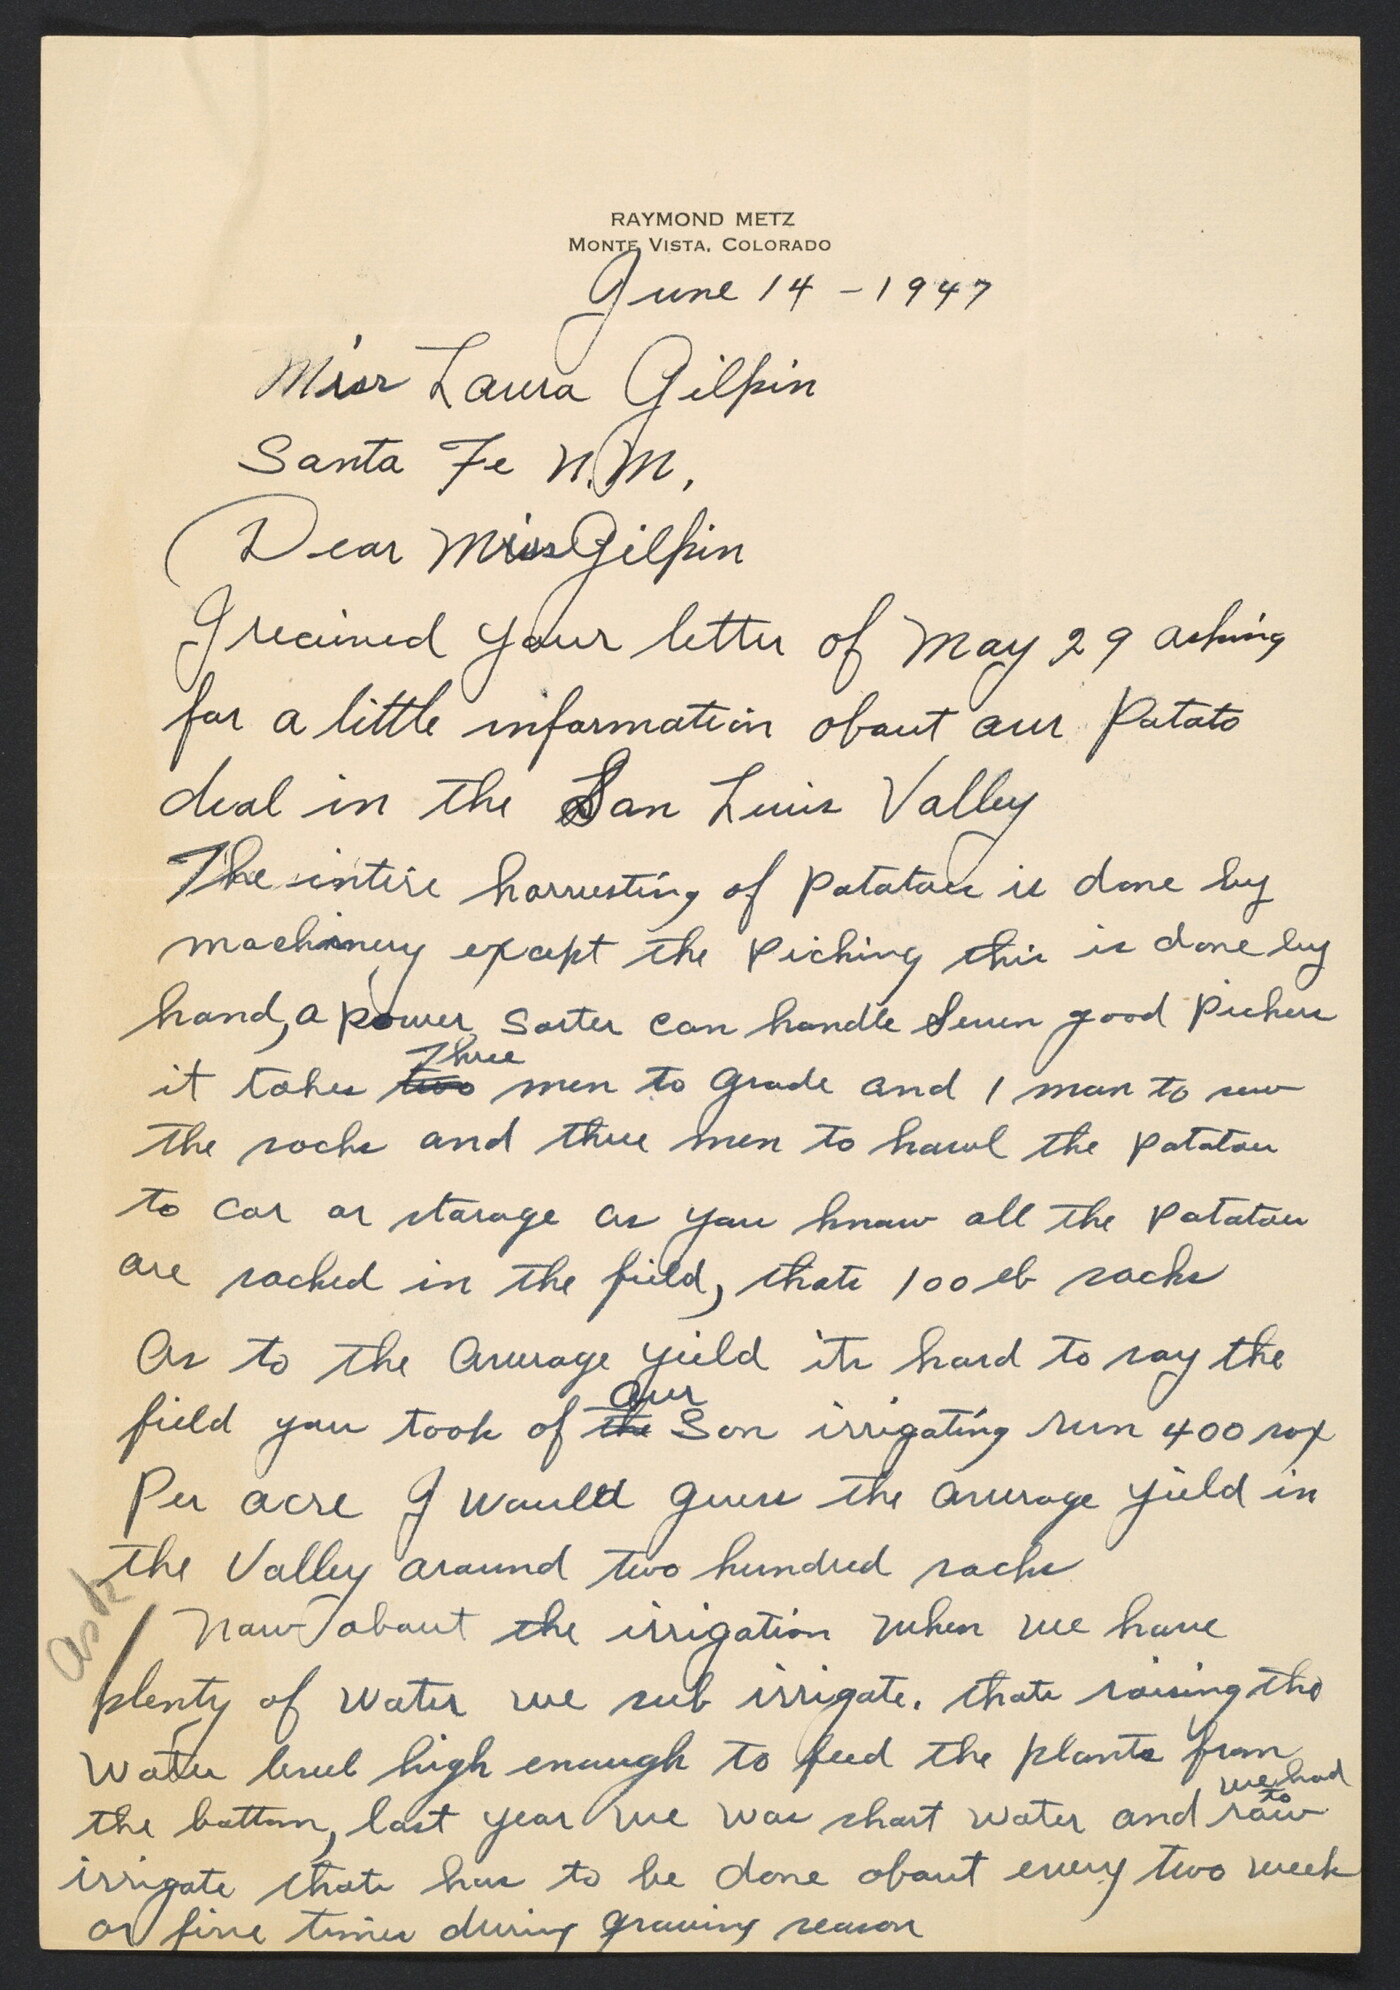 RAYMOND METZ
MONTE VISTA, COLORADO
June 14 - 1947
Miss Laura Gilpin
Santa Fe N.M.
Dear Miss Gilpin
I recieved your letter of May 29 asking
for a little information about our Potato
deal in the San Luis Valley
The intire harvesting of Potatoes is done by
machinery except the Picking this is done by
hand, a power sorter can handle Seven good Pickers
Three
it takes two men to grade and 1 man to sew
the sacks and three men to hawl the Potatoes
to car or storage as you know all the Potatoes
are sacked in the field, thats 100 lb sacks
As to the Average yield its hard to say the
Our
field you took of the Son irrigating run 400 sax
Per acre I would guess the average yield in
the Valley around two hundred sacks
Ask
Now about the irrigation when we have
plenty of water we sub irrigate. thats raising the
Water level high enough to feed the plants from
we had
to
the bottom, last year we was short water and raw
irrigate thats has to be done about every two week
or five times during growing season